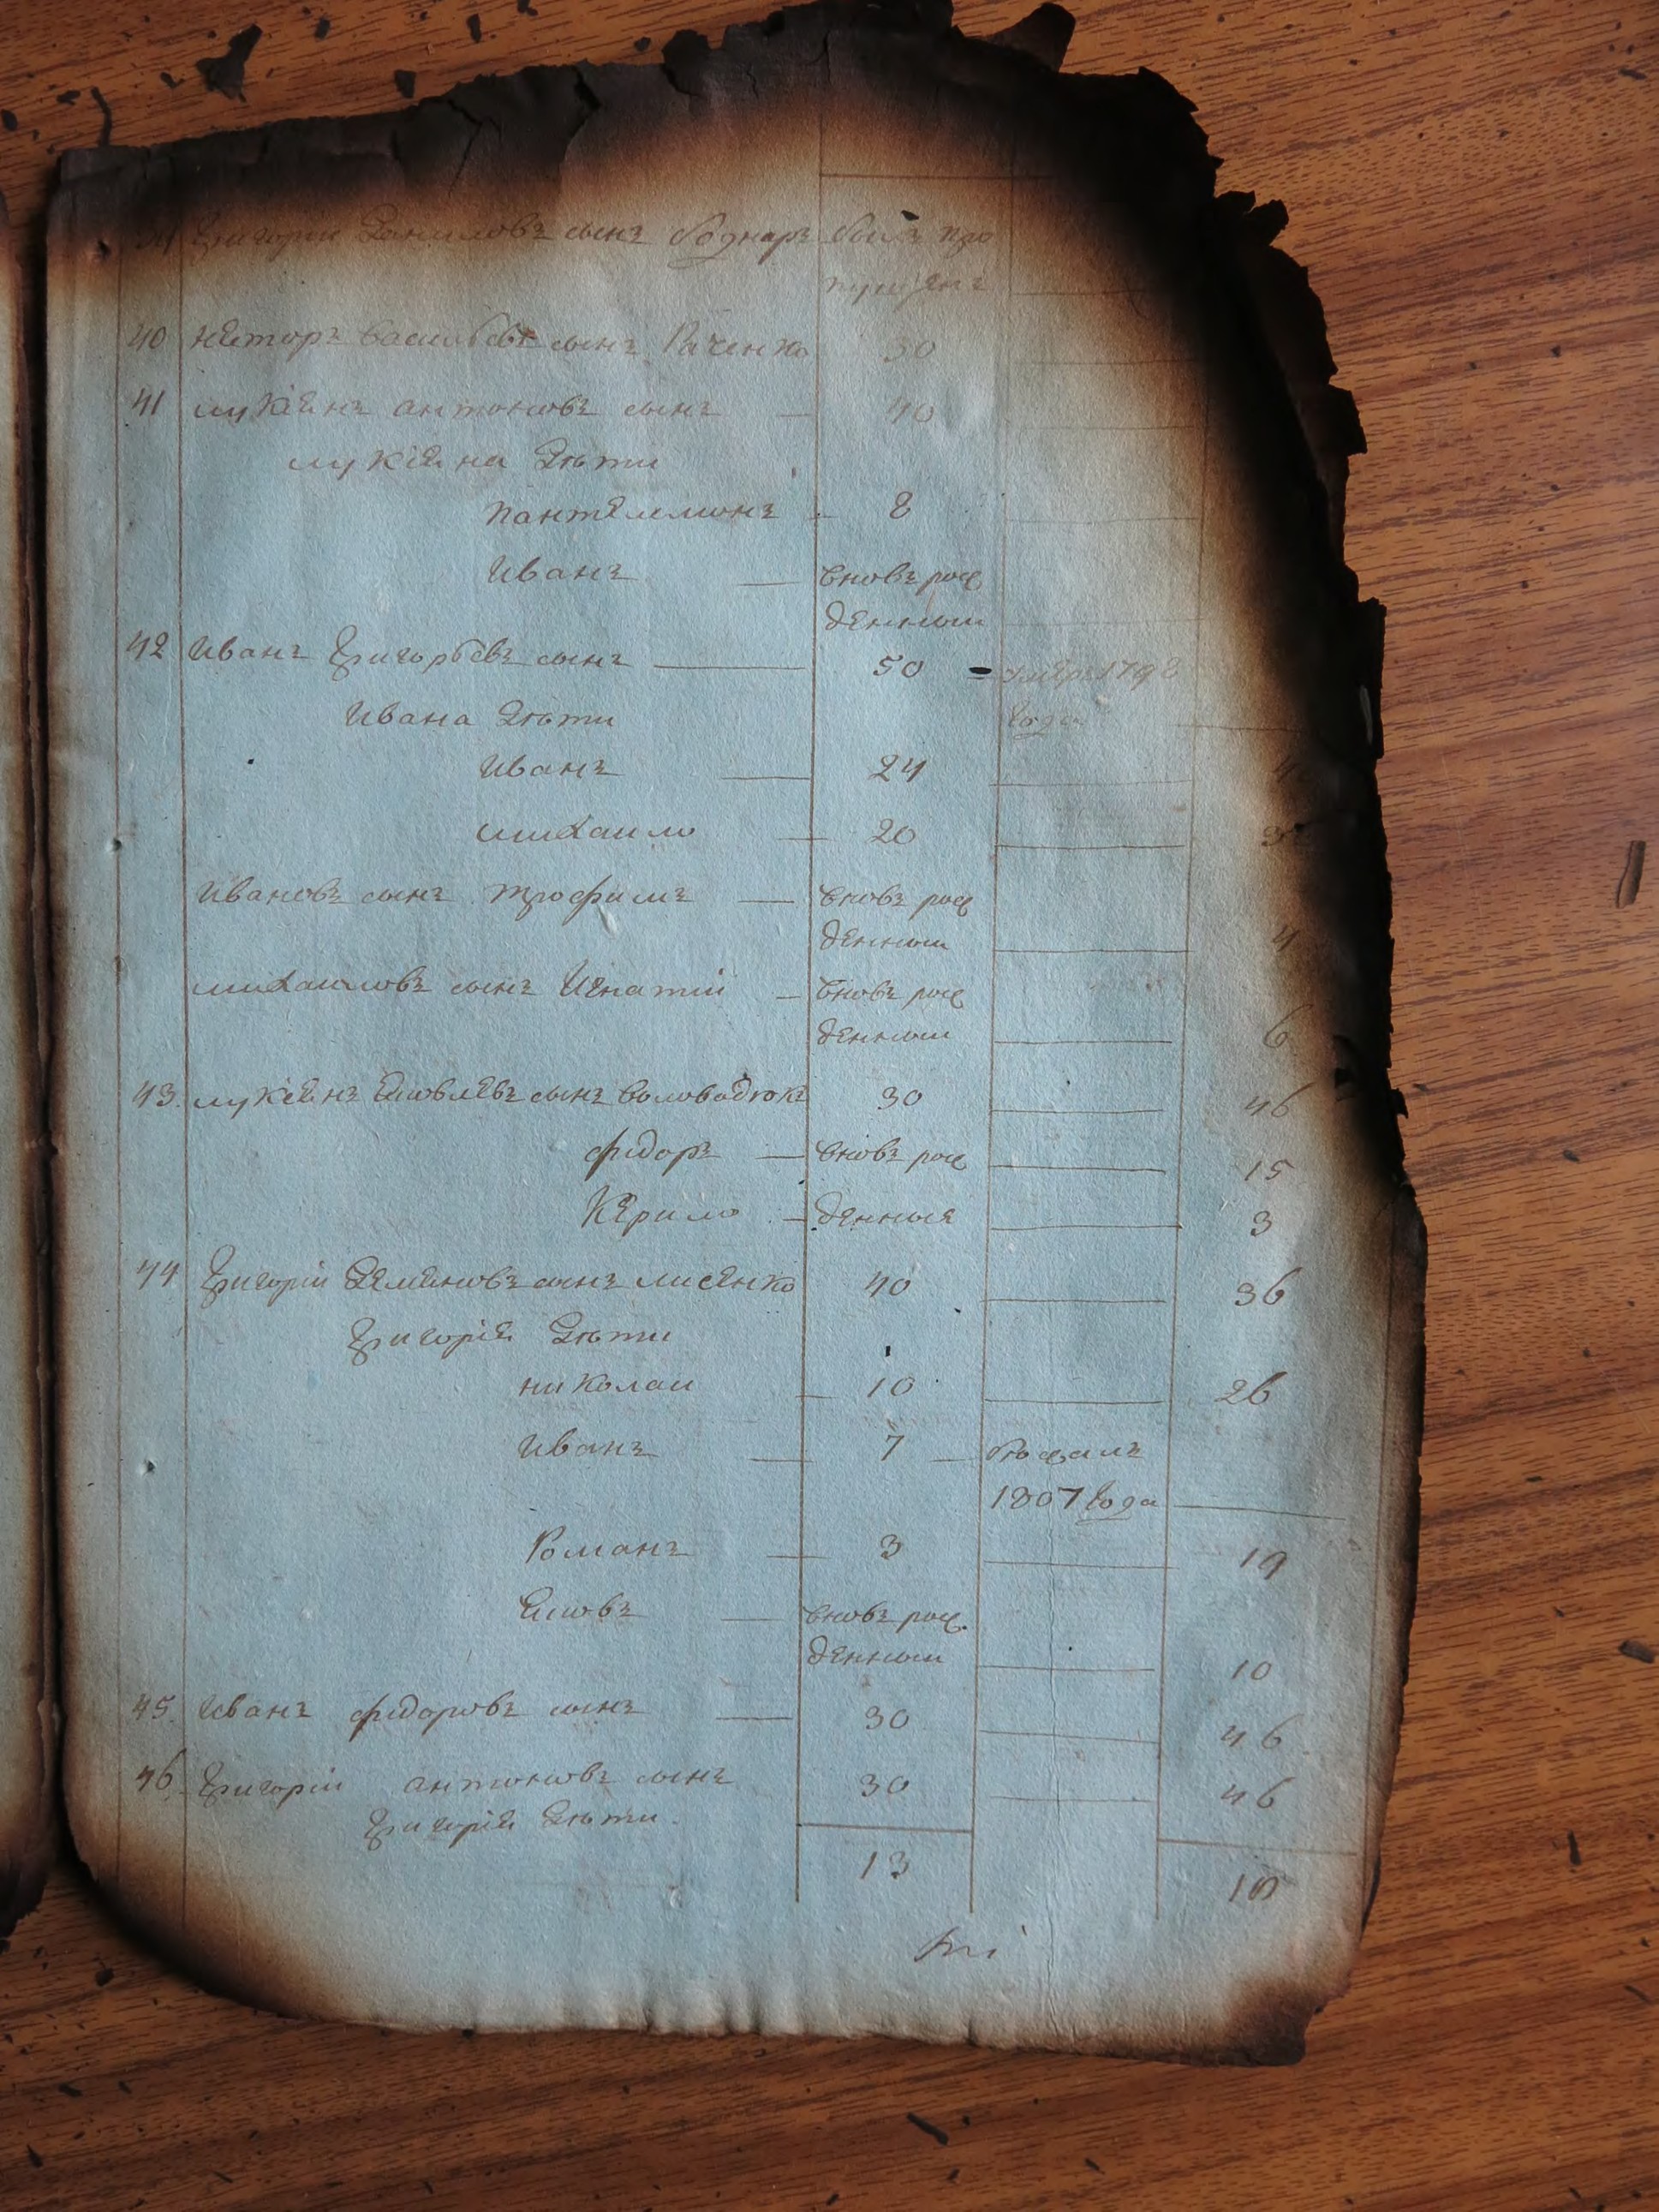 Григорій Даниловъ сынъ Боднаръ былъ про
пущенъ
40 Несторъ Васильевъ сынъ 30
41 лукіянъ антоновъ сынъ — 40
лукіяна Дѣти
пантелемонъ — 8
Иванъ — вновь рож
денный
42 Иванъ Григорьевъ сынъ — 50 умеръ 1798
года
Ивана Дѣти
Иванъ — 24
михаило — 20
Ивановъ сынъ трофимъ — вновь рож
денный 4
михаиловъ сынъ Игнатій — вновь рож
денный 6
43 лукіянъ Яковлевъ сынъ Воловодюкъ 30 46
федоръ — вновь рож 15
Керило — денные 3
44 Григорій Семеновъ сынъ лисенко 40 36
Григорія Дѣти
николаи — 10 26
Иванъ — 7 — бѣжалъ
1807 года
Романъ — 3 19
Яковъ — вновь рож
денный 10
45 Иванъ федоровъ сынъ — 30 46
46 Григорій антоновъ сынъ 30 46
Григорія Дѣти
13 10